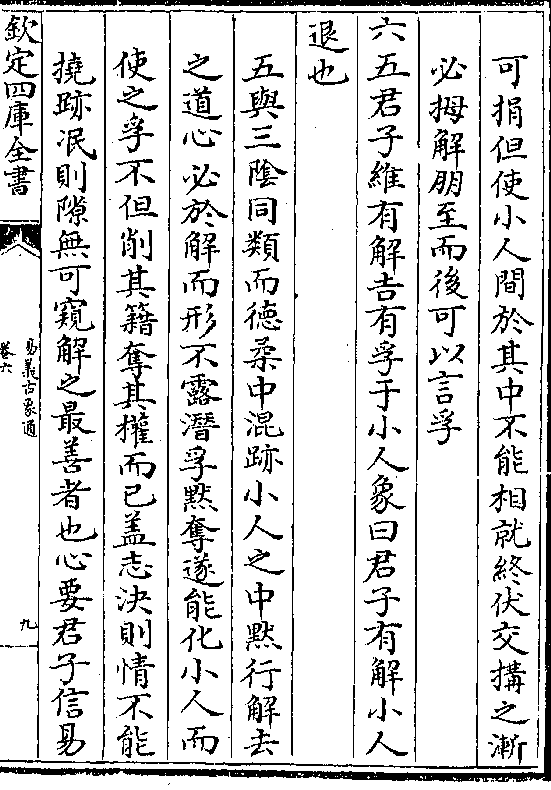 可捐但使小人間於其中不能相就終伏交搆之漸
必拇解朋至而後可以言孚
六五君子維有解吉有孚于小人象曰君子有解小人
退也
五與三陰同類而德柔中混跡小人之中黙行解去
之道心必於解而形不露潛孚黙奪遂能化小人而
使之孚不但削其籍奪其權而已盖志決則情不能
撓跡泯則隙無可窺解之最善者也心要君子信易
欽定四庫全書
易義古象通
卷六
九